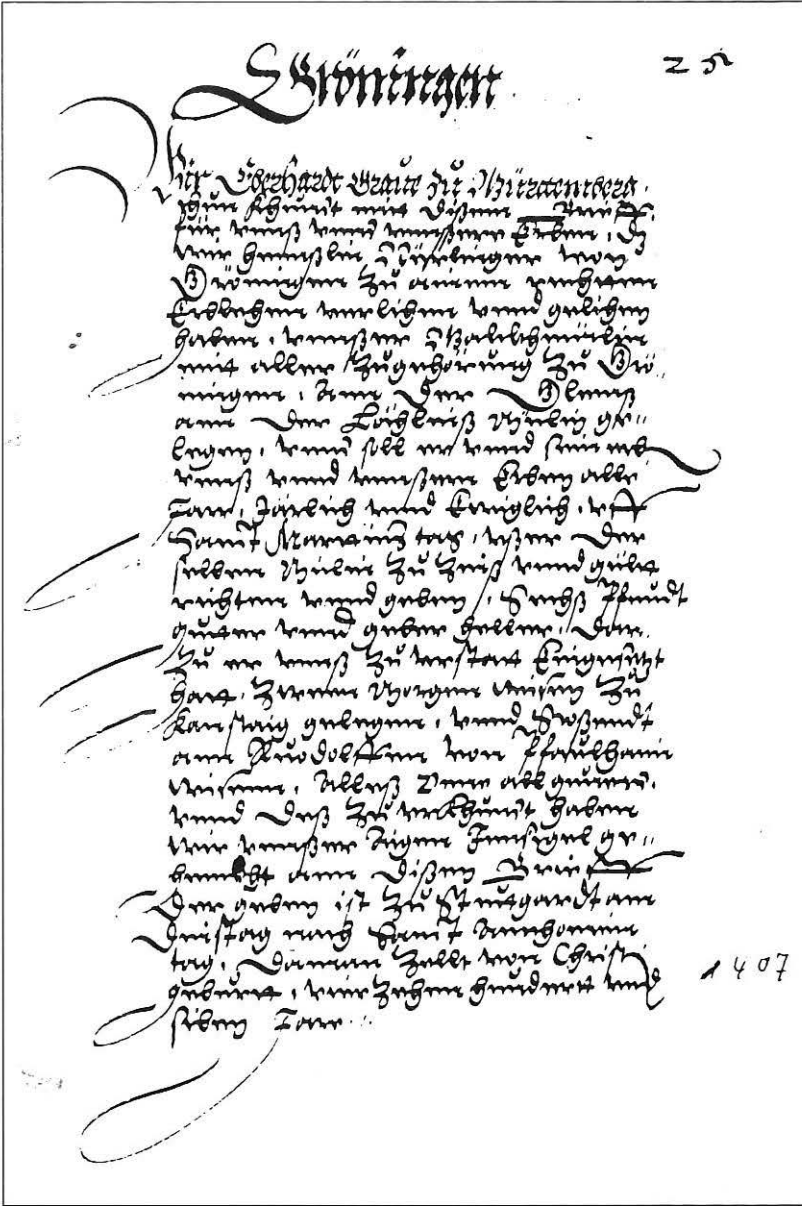 Gröningen
25
Wir Eberhardt Graue zu Württemberg.
Thun khundt mit disem Brieff,
für vnnß vnnd vnnßere Erben, dz
wir Hennßlin von
Gröningen zu ainem rechten
Erblehen verlihen vnnd gelihen
haben, vnnßer Walckhmülin
mit aller Zugehörung zu Grö-
ningen, Ann der Glemß
ann der Mülin ge-
legen, vnnd soll er vnnd sein erb
vnnß vnnd vnnßern Erben alle
Jare, Järlich vnnd Ewiglich, vff
Sannt Martinns tag, vßer der
selben Mülin zu Zinß vnnd gült
richten vnnd geben, Sechß Pfundt
guter vnnd geber heller, Dar
zu er vnnß zu verstatt Eingesetzt
hatt, Zwenn Morgen wisen zu
Kanstaig gelegen, vnnd Stoßendt
ann Ruodolffen von Pfaulhain
wisenn, Alleß one all geuerd,
vnnd deß zu vrkhundt haben
wir vnnßer Aigen Innsigel ge-
hennckht ann disen Brieff
Der geben ist zu Stutgardt am
Dinstag nach Sannt Annthonien
tag, Da man zellt von Christi
geburtt, vierzehen hundertt vnnd
siben Jare.
1407